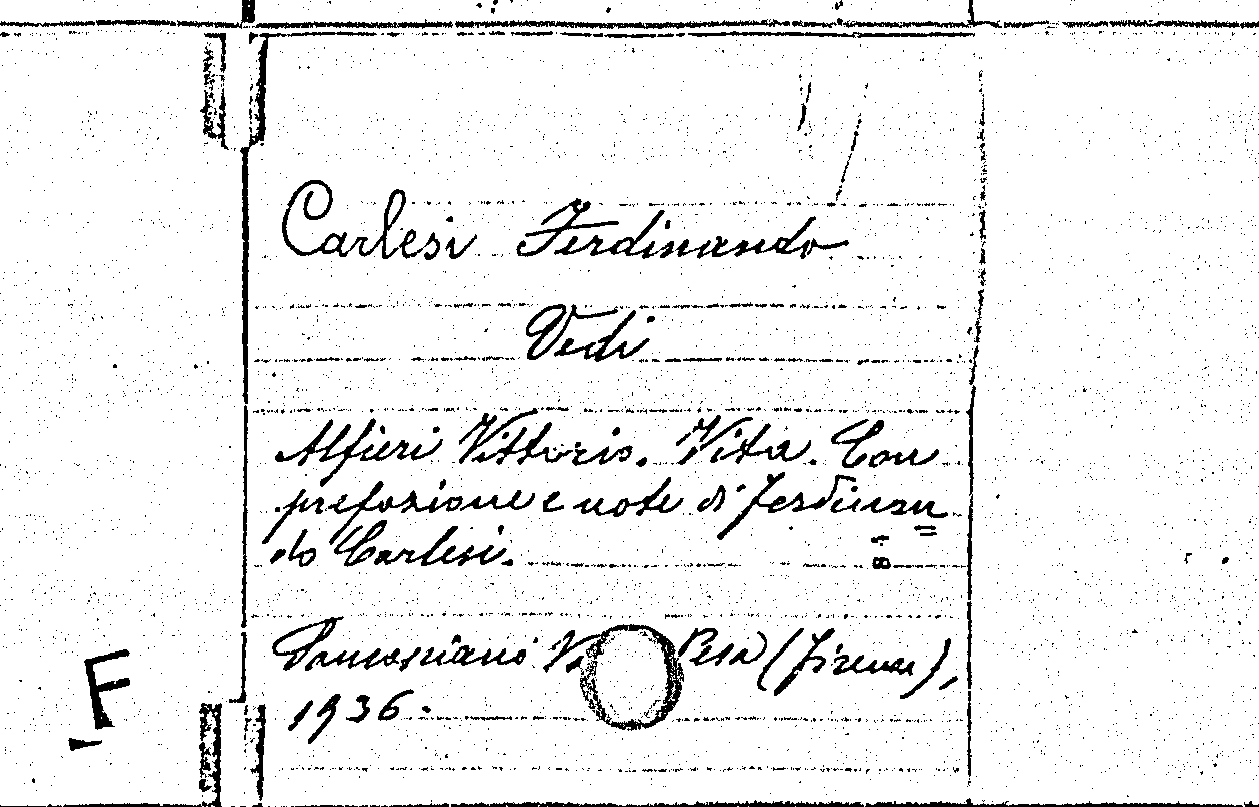 Carlesi Ferdinando
Vedi
Alfieri Vittorio. Vita. Con
prefazione e note di Ferdinan=
do Carlesi.
Sancasciano Pesa (Firenze),
1936.
F